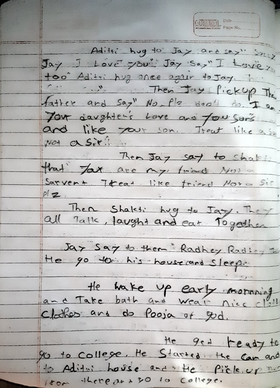 Aditri hug to Jay and say"
Jay I Love you" Jay say "I Love
too Aditri hug once again to Jay.
Then Jay Pickup The
father and Say" No, Plz don't do. I am
Your daughter's Love and You Sons
and like your son. Treat like a
Not a Sir"
Then Jay say to Shakti
that You are my friend Not
Sarvent Treat like friend Not a Sir
Plz.
Then Shakti hug to Jay. They
all Talk, laught and eat Together
Jay Say to them "Radhey Radhey
He go to his house and Sleep.
He wake up early mornning
and Take bath and wear Nice
clothes and do Pooja of god.
He get Ready to
go to college. He Started the Car and
to Aditri house and He Pick up
her there and go to college.